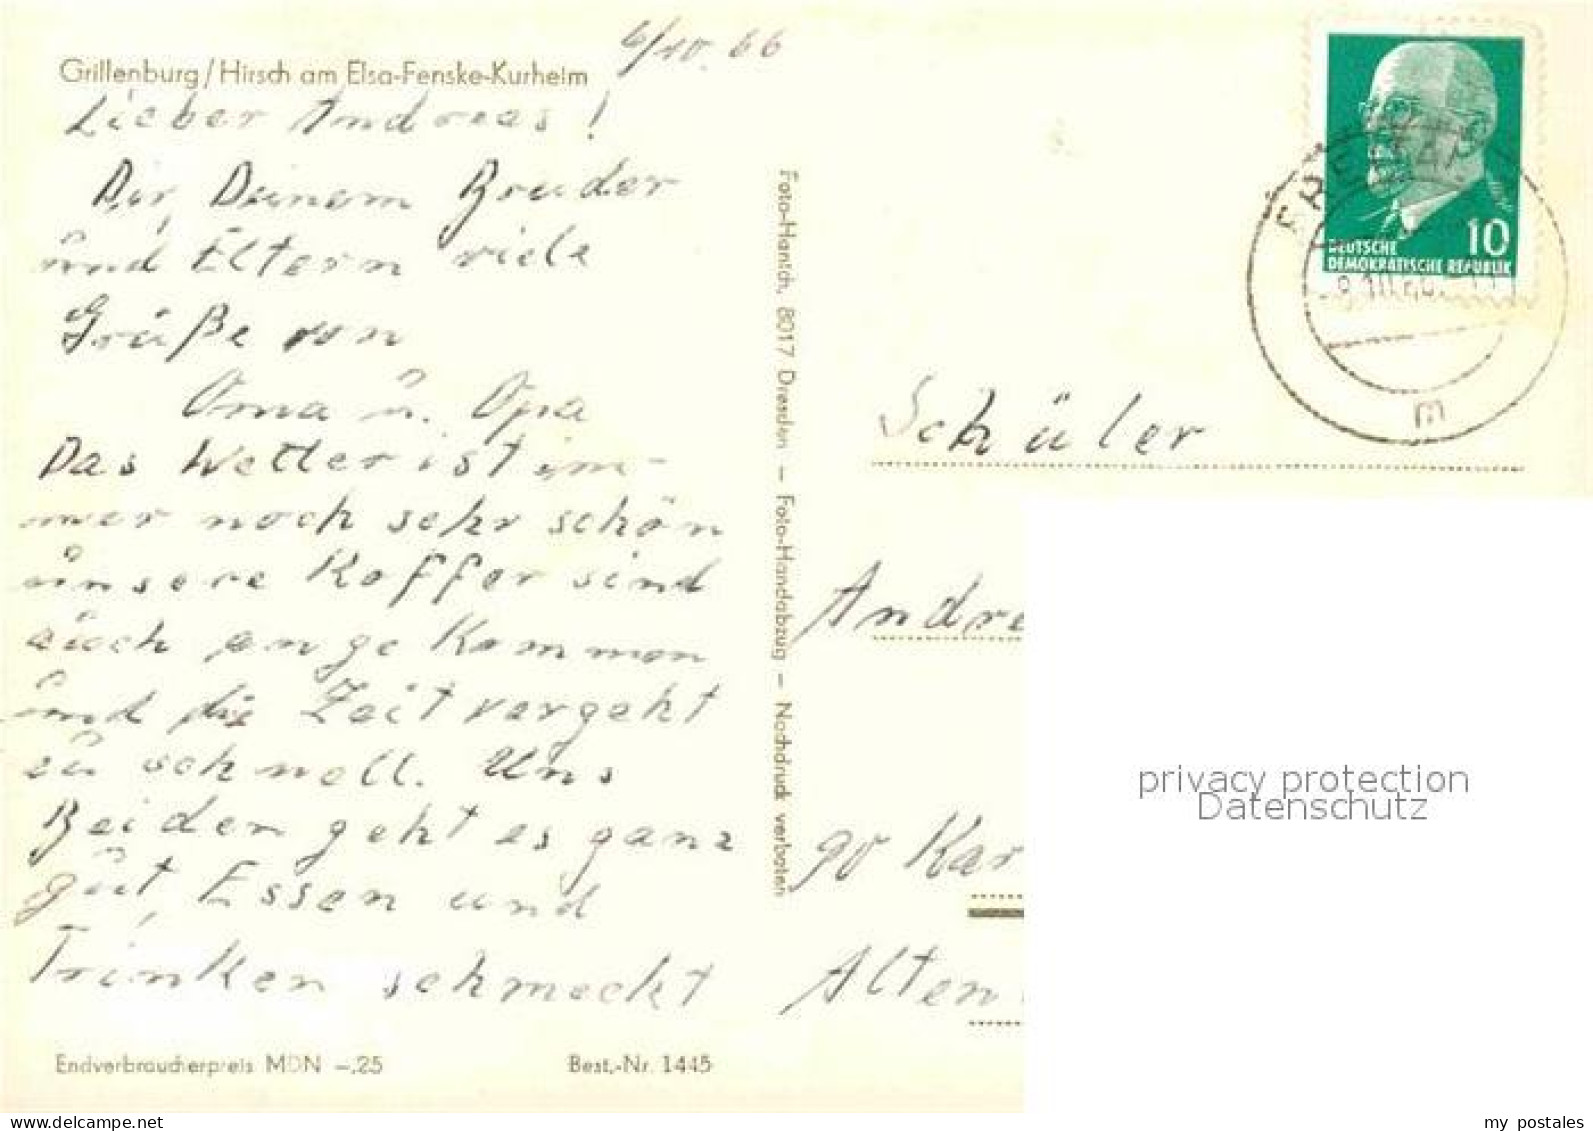 6/10.66
Grillenburg/Hirsch am Elsa-Fenske-Kurheim
Lieber Andreas!
Dir, Deinem Bruder
und Eltern viele
Grüße von
Oma u. Opa
Das Wetter ist im-
mer noch sehr schön
unsere Koffer sind
auch angekommen
und die Zeit vergeht
zu schnell. Uns
Beiden geht es ganz
gut, Essen und
Trinken schmeckt
Endverbraucherpreis MDN –,25
Best.-Nr. 1445
Foto-Hanich, 8017 Dresden — Foto-Handabzug — Nachdruck verboten
10
DEUTSCHE
DEMOKRATISCHE REPUBLIK
m
Schüler
Andre
90 Kar
Alten
privacy protection
Datenschutz
my_postales